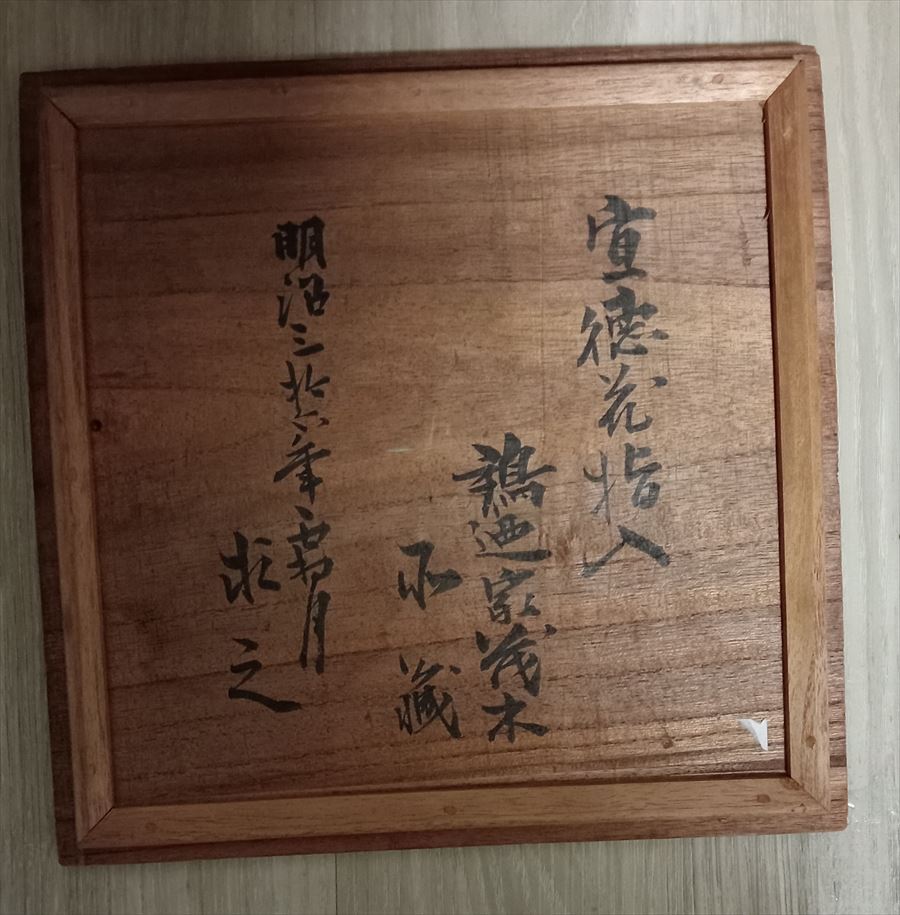 宣徳花指入
鶏廼家茂木
所藏
明治三拾六年霜月
求之